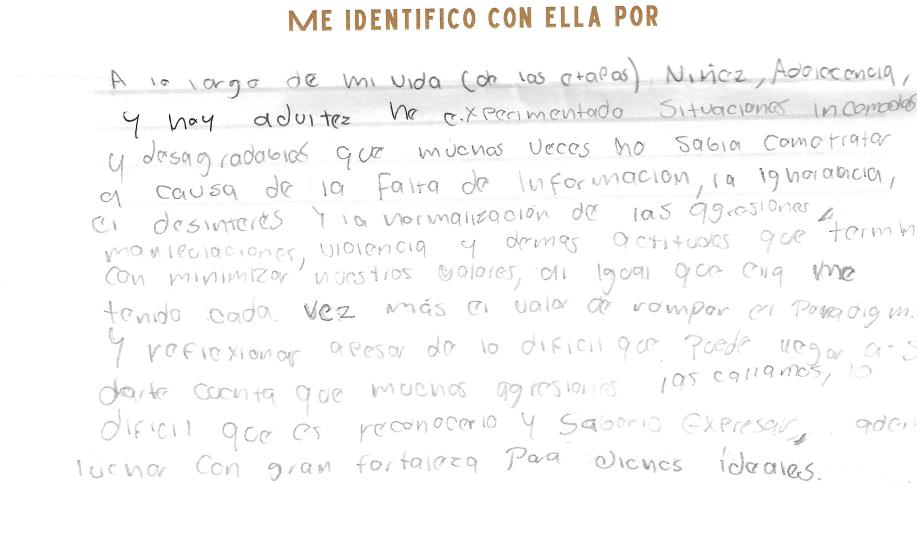 ME IDENTIFICO CON ELLA POR
A lo largo de mi vida (en las etapas) Niñez, Adolocencia,
y hoy adultez he experimentado Situaciones incomodas
y desagradables que muchas veces no sabia como tratar
a causa de la falta de Información, la ignorancia,
el desinterés y la normalización de las agresiones,
violencia y demas actitudes que termin
con minimizar nuestros valores, al igual que ella me
tenido cada vez más el valor de romper el Paradigm
Y reflexionar apesar de lo dificil que puede llegar a s
darte cuenta que muchas agresiones las callamos, lo
dificil que es reconocerlo y Saberlo Expresar,
luchar con gran fortaleza Para ideales.